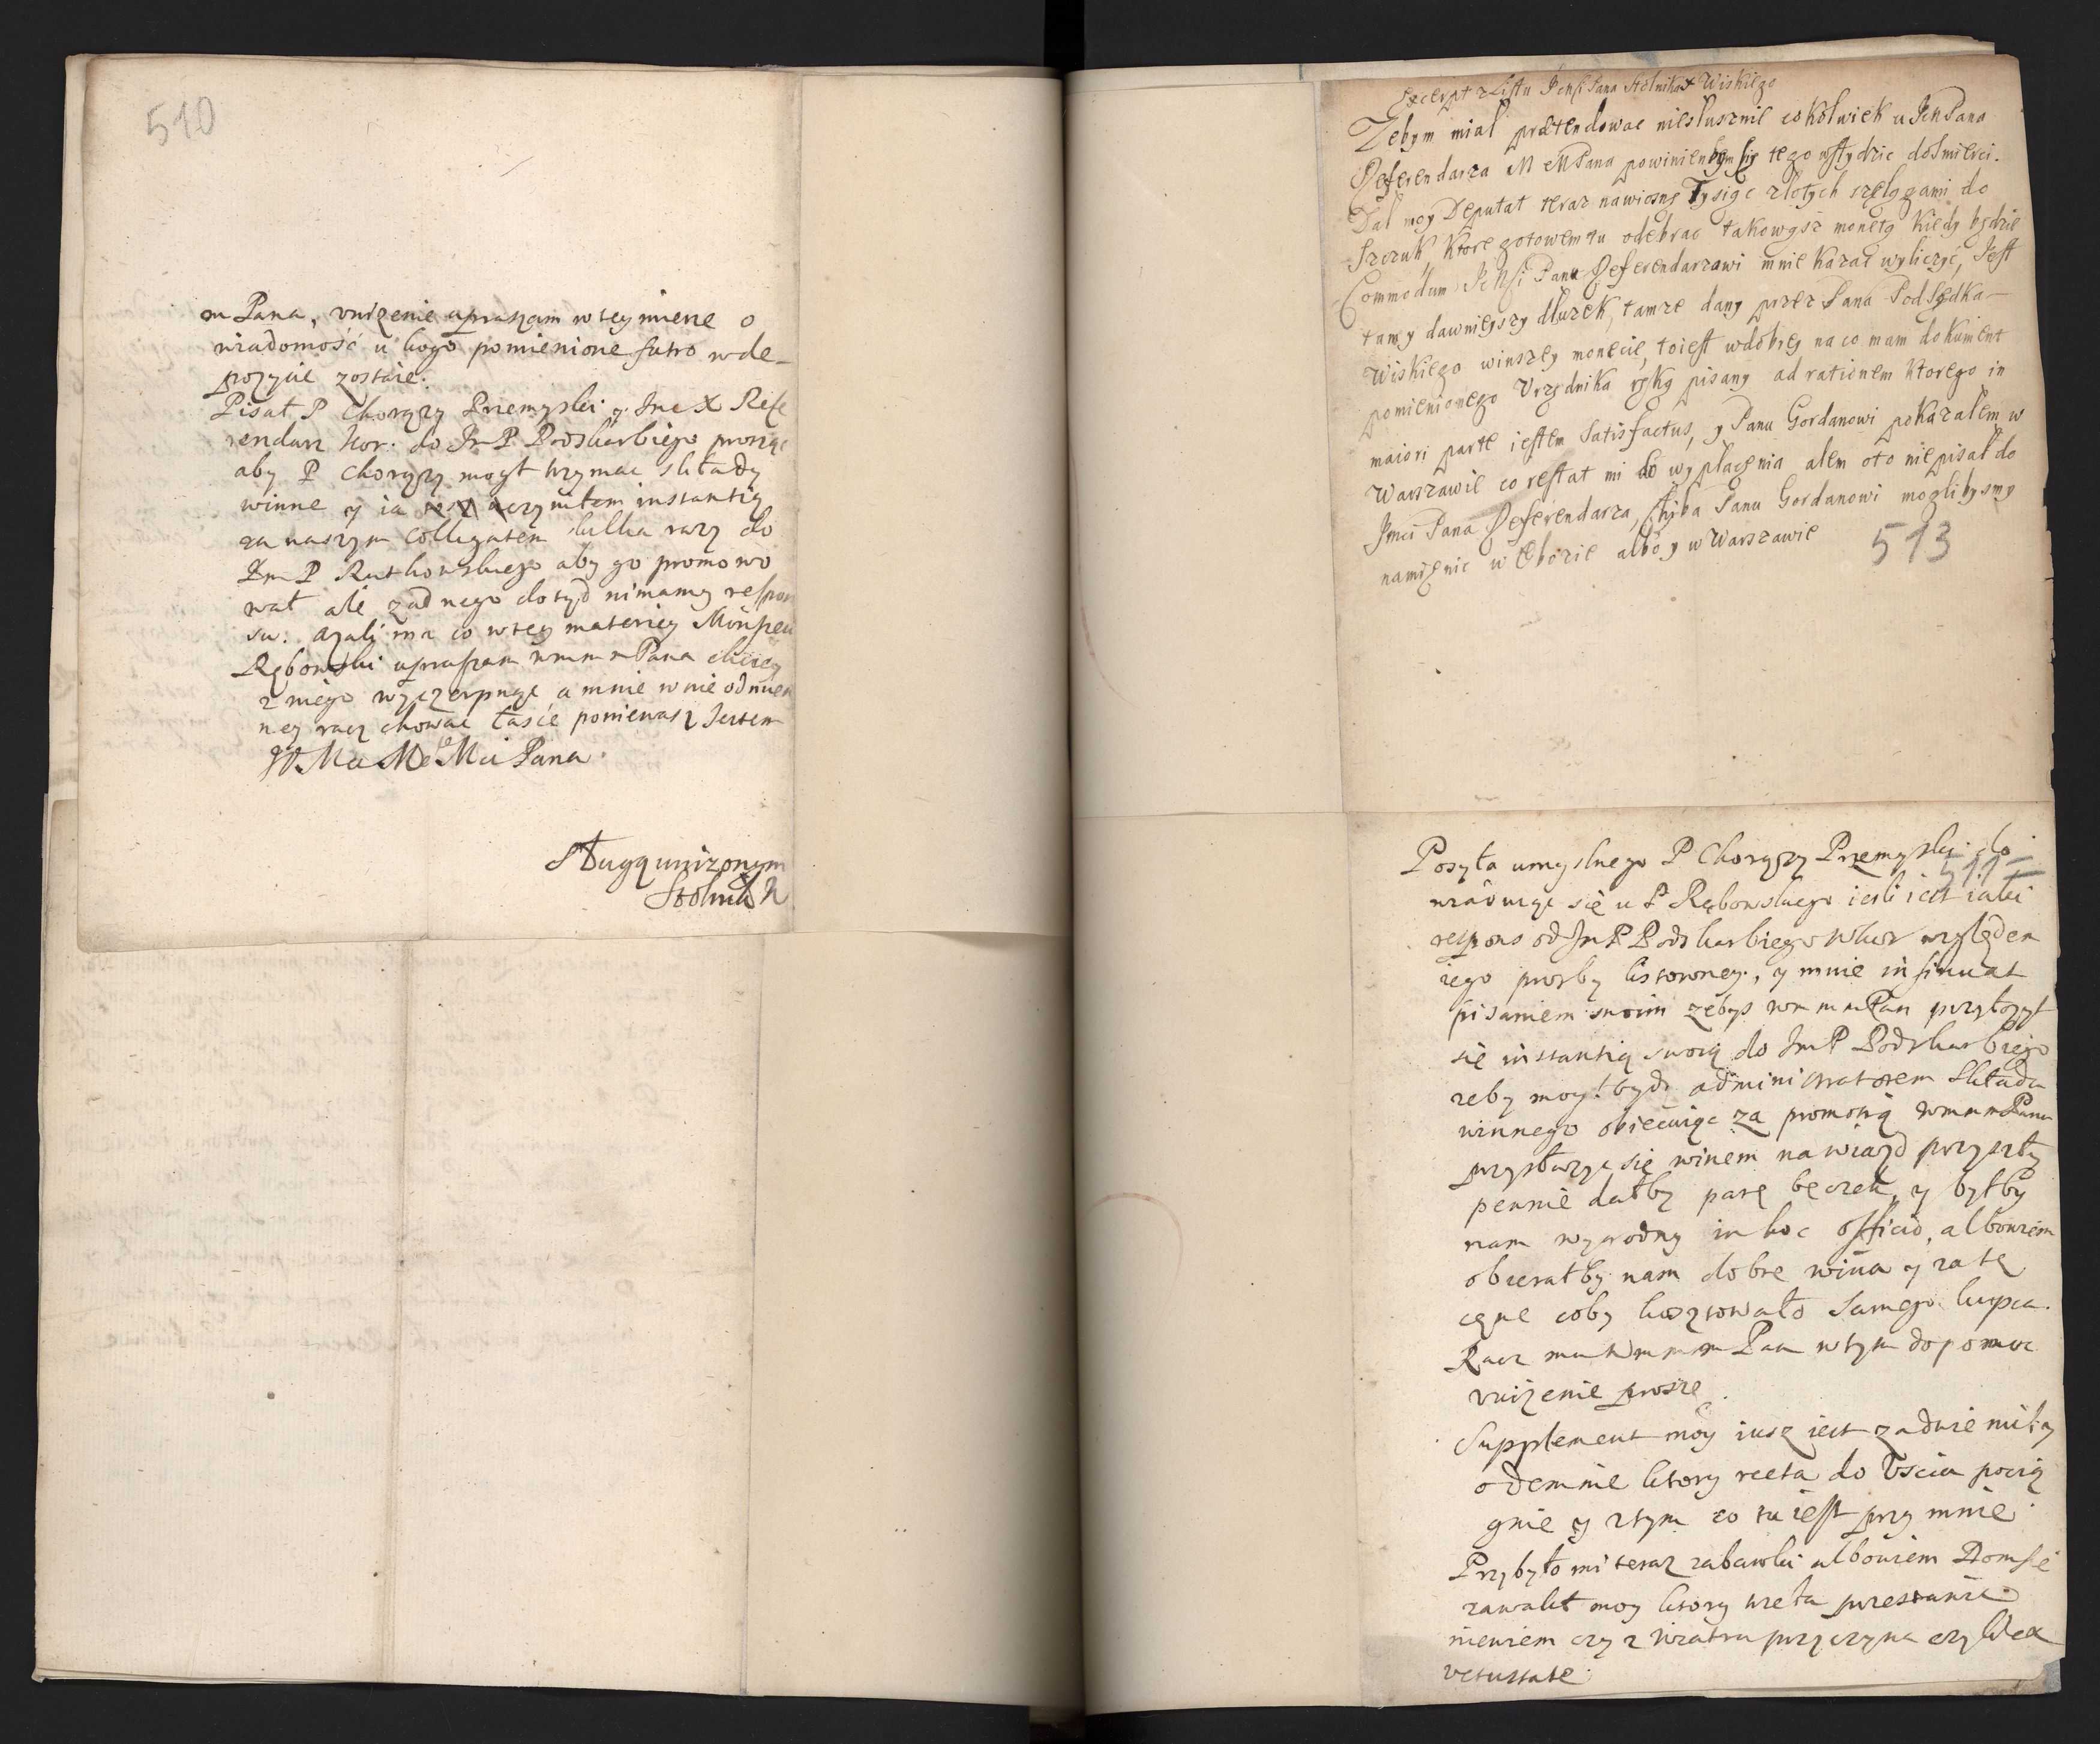 510
m Pana, unizenie upraszam w tey mierze o
wiadomość u kogo pomienione futro w de_
pozycie zostaie.
Pisał P Chorązy Przemyslki y Jmc X Refe
rendarz Kor: do Jm P Podskarbiego prosząc
aby P Chorązy mogł trzymac składy
winne y ia uczyniłem instantią
za naszym Collegatem kilka razy do
Jm P Rutkowskiego aby go promowo
wał ale zadnego dotyd nimamy respon
su. azali ma co w tey materiey Monsieu
Rębowski upraszam wmm m Pana chciey
z niego wyczerpnąc a mnie w nie odmien
ney racz chowac łasce poniewasz Jestem
W Mc M Mci Pana
Sługą unizonym
Stolnik
Excerpt z Listu Jmsci Pana Stolnika Wiskiego
Zebym miał prætendowac niesłusznie cokolwiek u Jm Pana
Referendarza M M Pana powinienbym się tego wstydzic do smierci.
Dał moy Deputat teraz na wiosnę Tysiąc złotych szelągami do
Szczuk, ktore gotowem tu odebrac takowąsz monetą kiedy będzie
Commodum JeMsci Panu Referendarzowi mnie kazac wyliczyć, Jest
tam y dawnieyszy dłuzek, tamze dany przez Pana Podsędka_
Wiskiego w inszey monecie, to iest w dobrey na co mam dokument
pomienionego Urzędnika ręką pisany ad rationem ktorego in
maiori parte iestem Satisfactus, y Panu Gordanowi pokazałem w
Warszawie co restat mi do wypłacenia alem o to nie pisał do
Jmci Pana Referendarza, chyba Panu Gordanowi moglibysmy
namienic w Obozie albo y w Warszawie
513
Posyła umyslnego P Chorązy Przemyslki do
511
wiaduiąc się u P Rębowskiego iesli iest iaki
respons od Jm P Podskarbiego Wkor względem
iego prozby listowney, y mnie insinuat
pisaniem swoim zebys wm m m Pan przyłozył
się instantią swoią do Jm P Podskarbiego
zeby mogł bydz administratorem składu
winnego obiecuiąc za promotią wmm m Pana
przysłuzyc się winem na wiazd przyszły
pewnie dałby parę beczek, y byłby
nam wygodny in hoc officio, albowiem
obierałby nam dobre wina y za tę
cenę coby kosztowało samego kupca.
Racz mu Wm m m Pan w tym dopomoc
unizenie proszę.
Supplement moy iusz iest za dwie mile
odemnie ktory recta do Uscia pocią
gnie y z tym co tu iest przy mnie
Przybyło mi teraz zabawki albowiem Dom się
zawalił moy ktory
niewiem czy z wiatru przyczyna czyli ex
vetustate